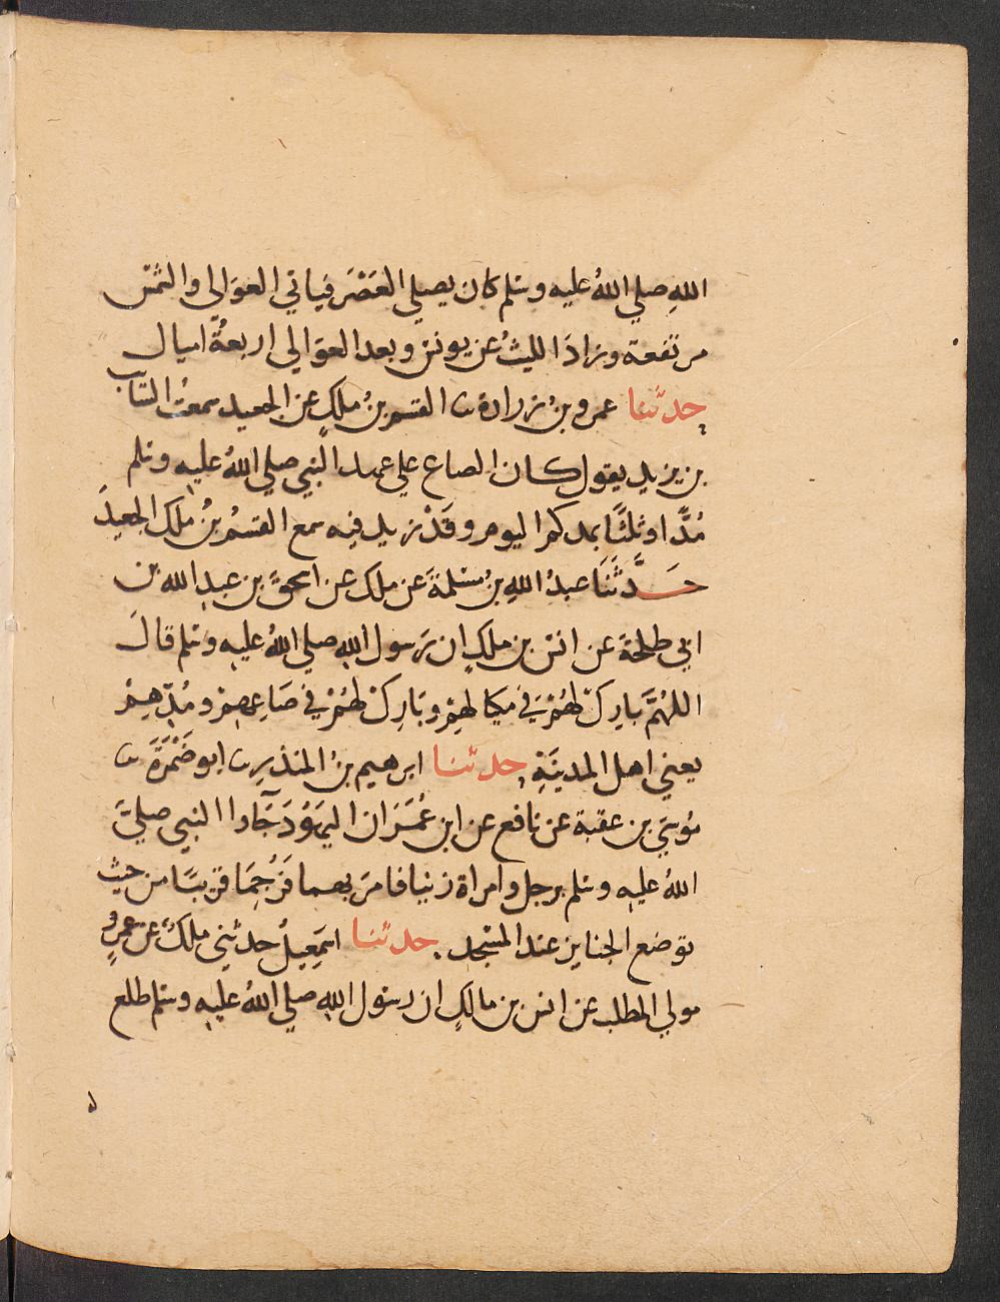 اللهِ صلي اللهُ عليه وسلم كان يصلي العَصْرَ فياتي العوَالي والشمس
مرتفعة وزادَ الليثُ عن يونس وبعد العوَالي اربعةُ اميال
حدثنا عمرو بنُ زرارة نا القسم بنُ ملكٍ عن الجعيد سمعتُ السائب
بن يزيد يقول كان الصاع علي عهد النبي صلي اللهُ عليه وسلم
مُدًّا وثلثًا بمدكم اليوم وقَدْ زيد فيه سمع القسمُ بنُ ملك الجعيدَ
حَدَّثَنَا عبدُ اللهِ بنُ مسْلمةَ عن ملك عن اسحقَ بن عبد الله بن
ابي طلحة عن انس بن ملكٍ ان رَسول الله صلي اللهُ عليه وسلم قالَ
اللهُمَّ بارِكْ لهُمْ في ميكالهِمْ وبَارِكْ لهُمْ في صَاعِهِمْ ومُدِّهِمْ
يعني اهل المدينَةِ حدثنا ابرهيم بنُ المنذِر نا ابو ضَمْرَةَ نا
مُوسَي بن عقبة عن نافع عن ابن عُمَرَ ان اليَهُوْدَ جَآءُوا النبي صليَّ
اللهُ عليه وسلم برجل وامراة زنيا فامرَ بهما فَرُجِمَا قريبًا من حيث
توضع الجنايز عند المسْجد حدثنا اسمَعِيلُ حدثني ملكٌ عن عمرٍو
مولي المطلب عن انس بن مالكٍ ان رسُول اللهِ صلي اللهُ عليه وسلم طلع